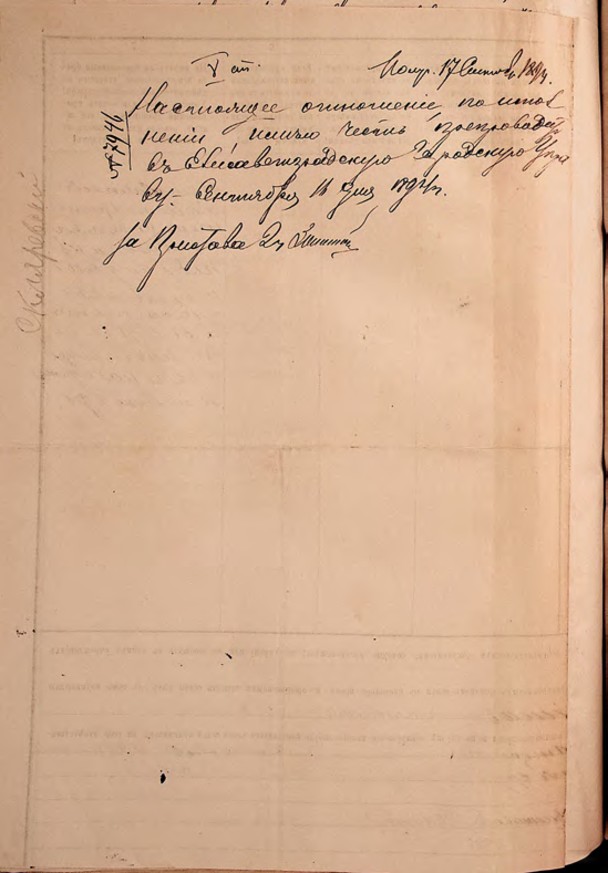 V ст.
Получ. 17 Сентяб. 1894
№ 7946
Настоящее отношеніе по испол
неніи имѣю честь препроводить
въ Елисаветградскую Городскую Упра
ву. Сентября 16 дня 1894 г.
За Пристава